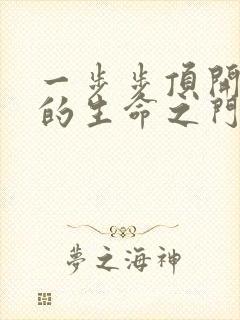 一步步頂開
的生命之門
夢之海神